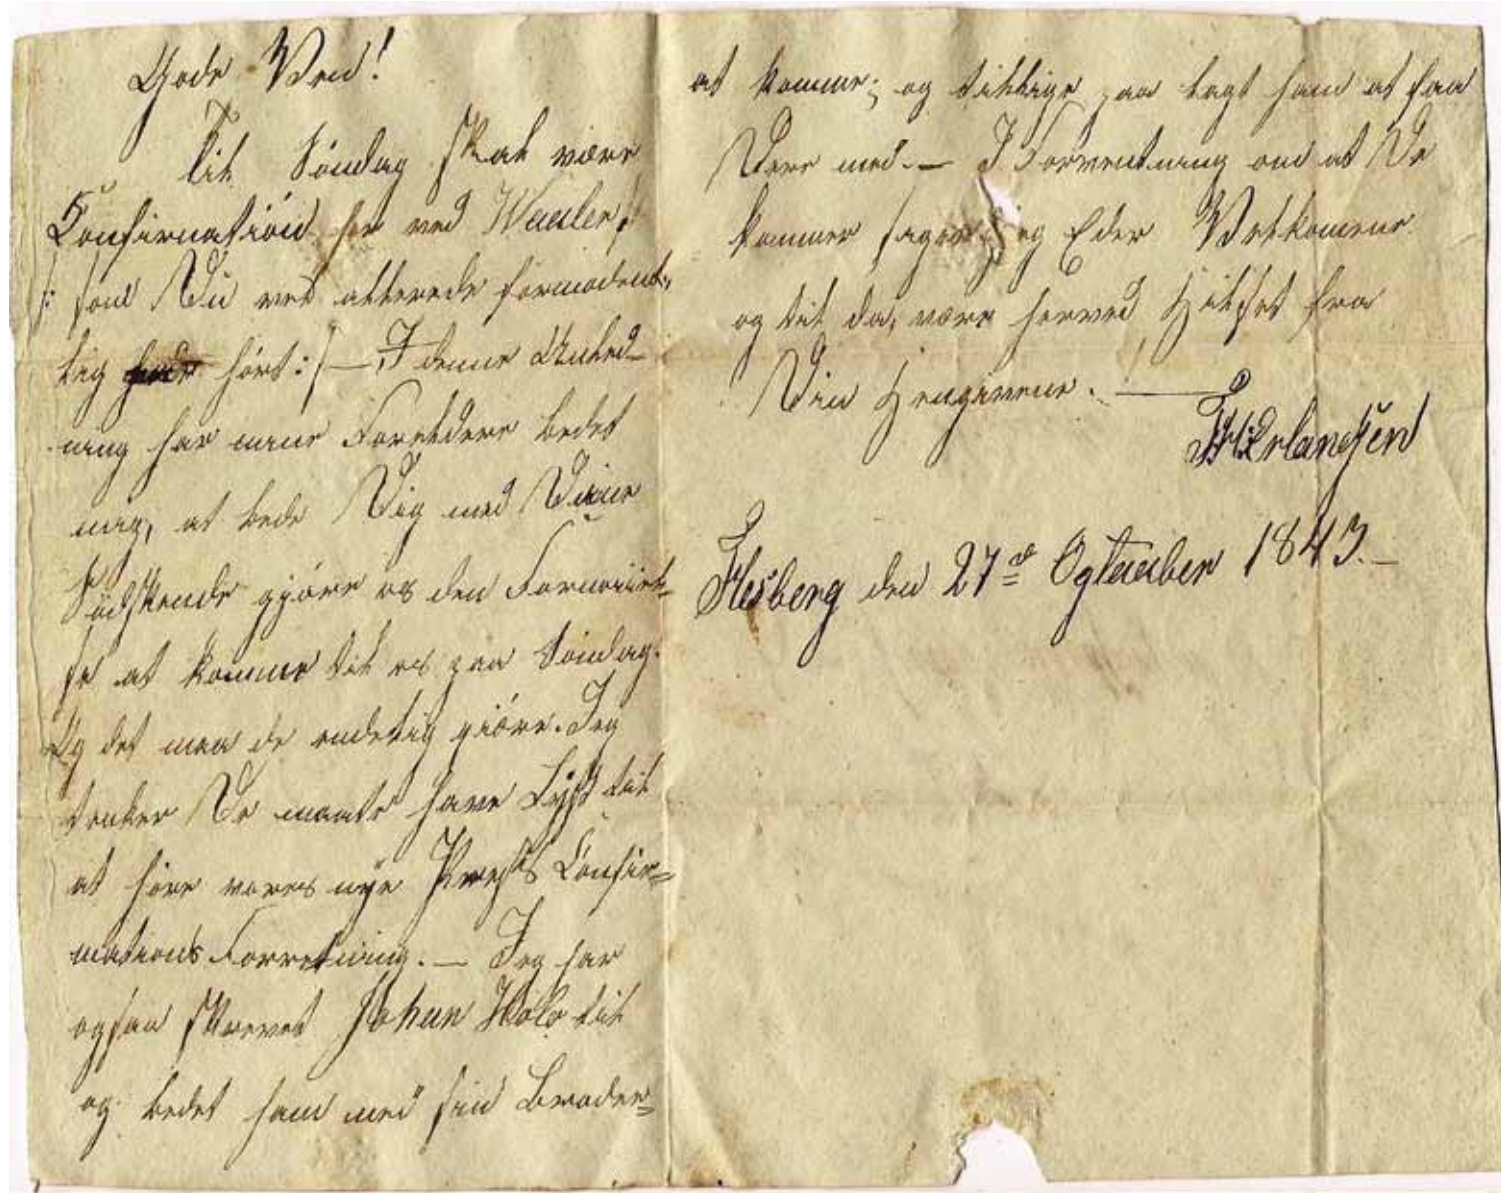 Gode Ven!
Til Söndag skal være
Confirmation her ved Waaler,
/: som Du vel allerede formodent-
lig hört :/ — I denne Anled-
ning har mine Foreldere bedet
mig, at bede Dig med Dine
Södskende gjöre os den Fornöiel-
se at komme til os paa Söndag.
Og det maa de endelig giöre. Jeg
tenker De maate have Lyst til
at höre vores nye Prests Confir=
mations Forretning. — Jeg har
ogsaa skrevet Johan til
og bedet ham med sin Broder=
at komme; og tillige paa lagt ham at faa
Dere med. — I Forventning om at De
kommer siger jeg Eder Velkomene
og til da, være herved Hilset fra
Din Hengivene. —
Erlandsen
Flesberg den 27de Octauber 1843. —